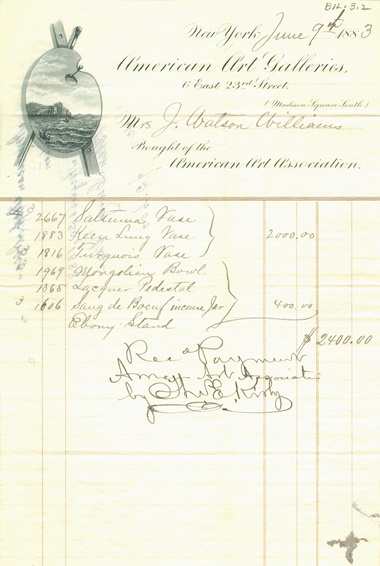 BIL. 3.2
New York June 9th 1883
American Art Galleries,
6 East 23rd Street.
(Madison Square South.)
Mrs J. Watson Williams
Bought of the
American Art Association.
2667 Satsuma Vase
1883 Keen Lung Vase 2000.00
1816 Turquois Vase
1969 Mongolian Bowl
1365 Lacquer Pedestal
1606 Sang de Boeuf incense Jar 400.00
Ebony Stand
$2400.00
Recd Payment
Amer Art Association
by Thos E. Kirby